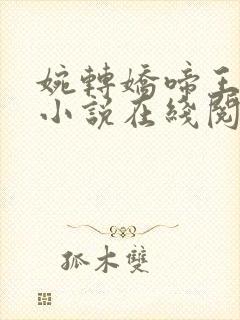 婉轉嬌啼王
小說在綫閱
孤木雙